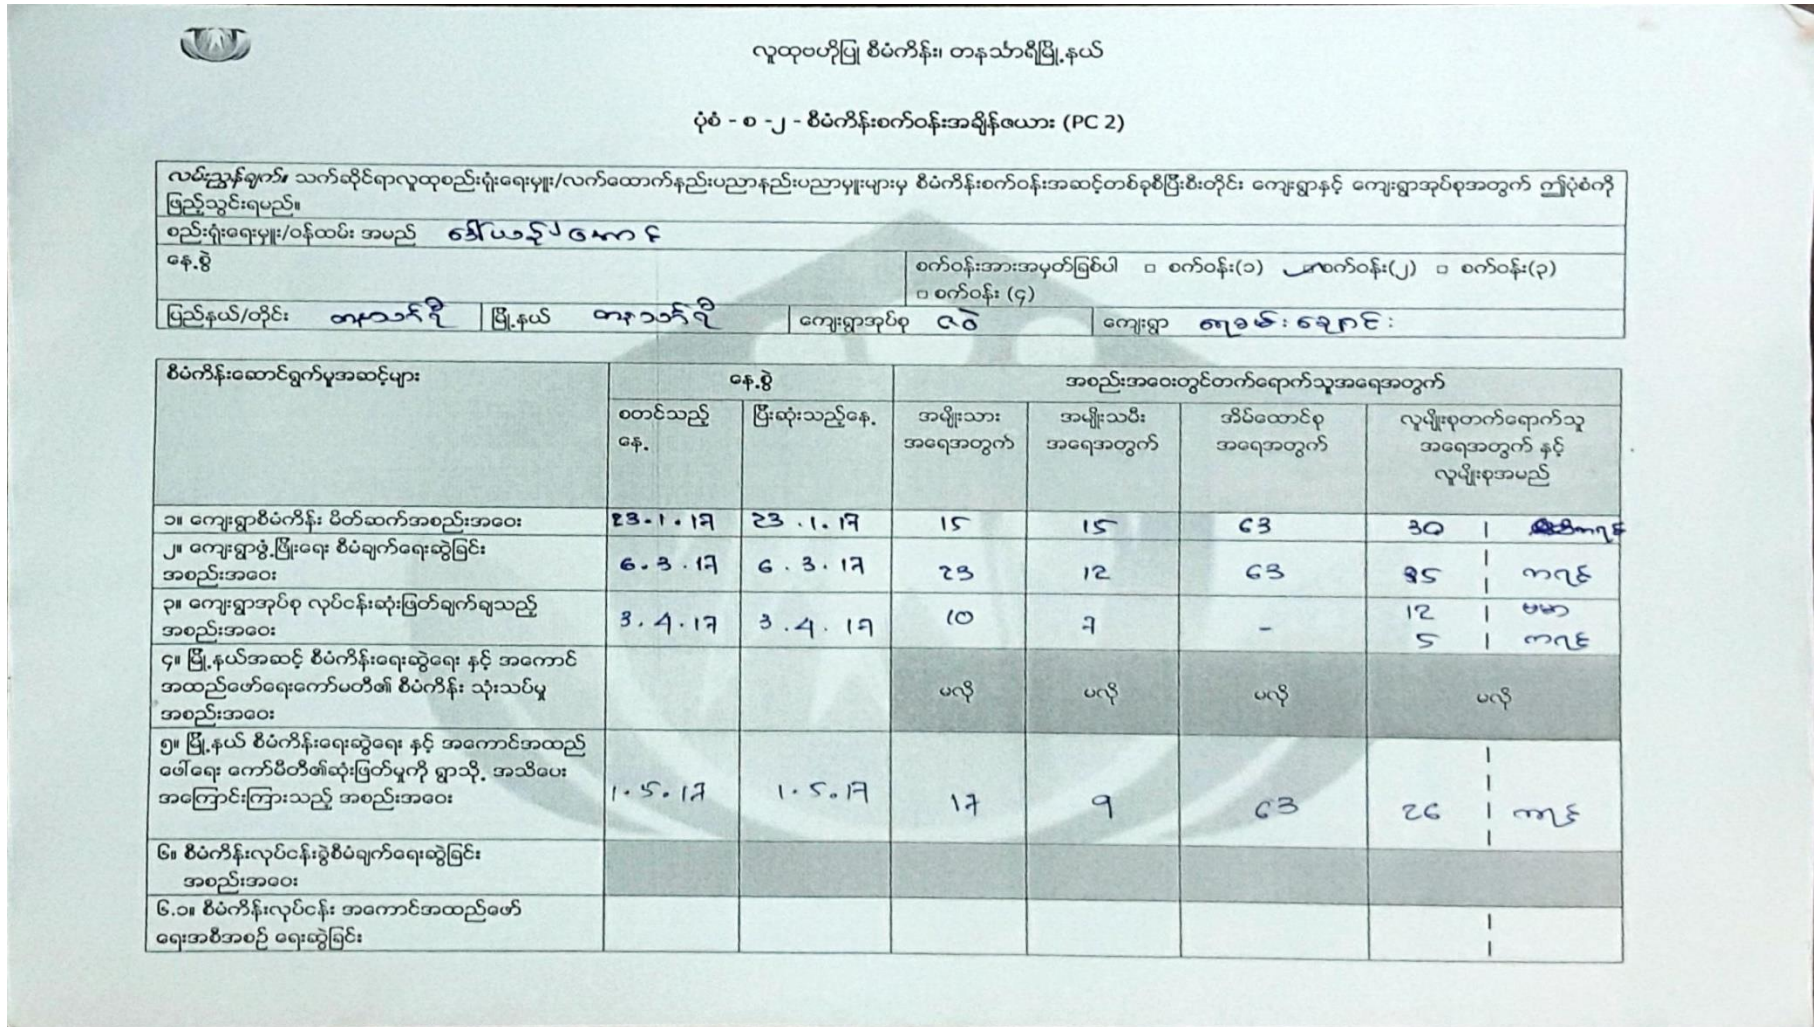 လူထုဗဟိုပြု စီမံကိန်း၊ တနင်္သာရီမြို့နယ်
ပုံစံ - စ -၂ - စီမံကိန်းစက်ဝန်းအချိန်ဇယား (PC 2)
လမ်းညွှန်ချက်။ သက်ဆိုင်ရာလူထုစည်းရုံးရေးမှူး/လက်ထောက်နည်းပညာနည်းပညာမှူးများမှ စီမံကိန်းစက်ဝန်းအဆင့်တစ်ခုစီပြီးစီးတိုင်း ကျေးရွာနှင့် ကျေးရွာအုပ်စုအတွက် ဤပုံစံကို
ဖြည့်သွင်းရမည်။
စည်းရုံးရေးမှူး/ဝန်ထမ်း အမည်
နေ့စွဲ
စက်ဝန်းအားအမှတ်ခြစ်ပါ □ စက်ဝန်း(၁) စက်ဝန်း(၂) □ စက်ဝန်း(၃)
□ စက်ဝန်း (၄)
ပြည်နယ်/တိုင်း တနသင်္ရီ မြို့နယ် တနသင်္ရီ ကျေးရွာအုပ်စု ဇဝဲ ကျေးရွာ
စီမံကိန်းဆောင်ရွက်မှုအဆင့်များ နေ့စွဲ အစည်းအဝေးတွင်တက်ရောက်သူအရေအတွက်
စတင်သည့် ပြီးဆုံးသည့်နေ့ အမျိုးသား အမျိုးသမီး အိမ်ထောင်စု လူမျိုးစုတက်ရောက်သူ
နေ့ အရေအတွက် အရေအတွက် အရေအတွက် အရေအတွက် နှင့်
လူမျိုးစုအမည်
၁။ ကျေးရွာစီမံကိန်း မိတ်ဆက်အစည်းအဝေး 23.1.17 23.1.17 15 15 63 30 ကရင်
၂။ ကျေးရွာဖွံ့ဖြိုးရေး စီမံချက်ရေးဆွဲခြင်း
အစည်းအဝေး 6.3.17 6.3.17 23 12 63 35 ကရင်
၃။ ကျေးရွာအုပ်စု လုပ်ငန်းဆုံးဖြတ်ချက်ချသည့် 12 ဗမာ
အစည်းအဝေး 3.4.17 3.4.17 10 7 - 5 ကရင်
၄။ မြို့နယ်အဆင့် စီမံကိန်းရေးဆွဲရေး နှင့် အကောင်
အထည်ဖော်ရေးကော်မတီ၏ စီမံကိန်း သုံးသပ်မှု မလို မလို မလို မလို
အစည်းအဝေး
၅။ မြို့နယ် စီမံကိန်းရေးဆွဲရေး နှင့် အကောင်အထည်
ဖေါ်ရေး ကော်မီတီ၏ဆုံးဖြတ်မှုကို ရွာသို့ အသိပေး
အကြောင်းကြားသည့် အစည်းအဝေး 1.5.17 1.5.17 17 9 63 26 ကရင်
၆။ စီမံကိန်းလုပ်ငန်းခွဲစီမံချက်ရေးဆွဲခြင်း
အစည်းအဝေး
၆.၁။ စီမံကိန်းလုပ်ငန်း အကောင်အထည်ဖော်
ရေးအစီအစဉ် ရေးဆွဲခြင်း